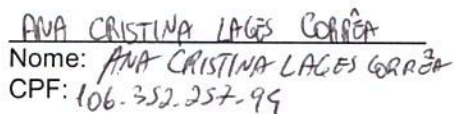 ANA CRISTINA LAGES CORRÊA
Nome: ANA CRISTINA LAGES CORRÊA
CPF: 106.352.257-99